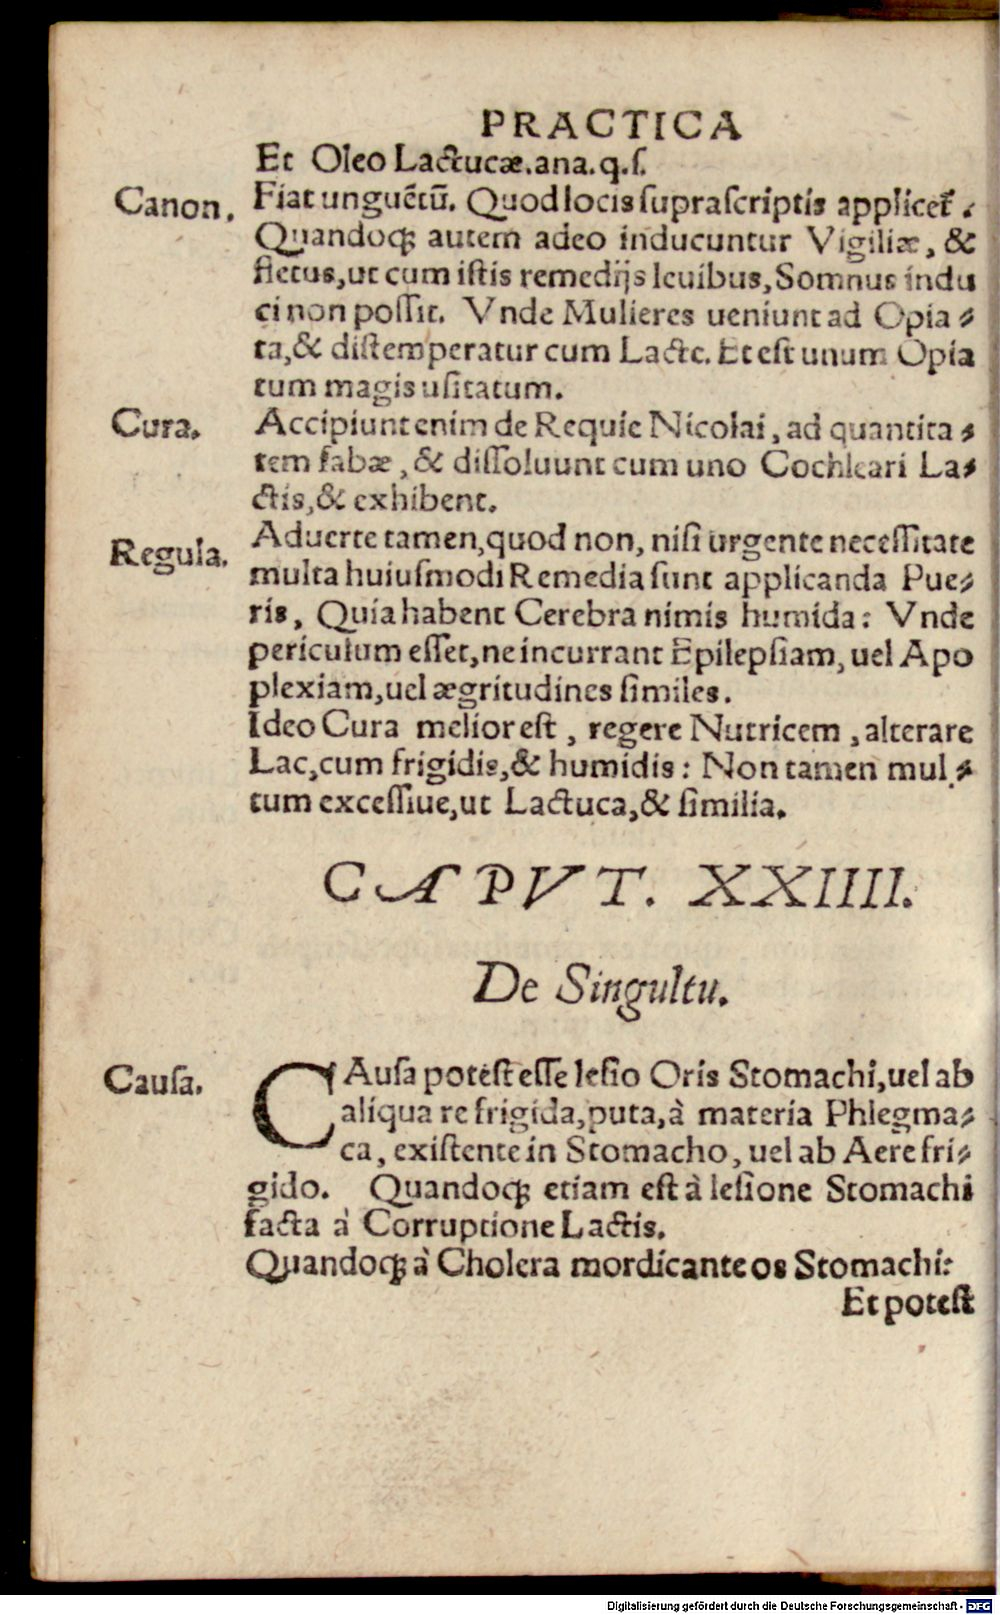 PRACTICA
Et Oleo Lactucæ.ana.q.ſ.
Canon.
Fiat unguẽtũ. Quod locis ſupraſcriptis applicet᷑.
Quandoqꝫ autem adeo inducuntur Vigiliæ, &
fletus,ut cum iſtis remedijs leuibus, Somnus indu
ci non poſſit. Vnde Mulieres ueniunt ad Opia-
ta,& diſtemperatur cum Lacte. Et eſt unum Opia
tum magis uſitatum.
Cura.
Accipiunt enim de Requie Nicolai, ad quantita-
tem fabæ, & diſſoluunt cum uno Cochleari La-
ctis,& exhibent.
Regula.
Aduerte tamen,quod non, niſi urgente neceſſitate
multa huiuſmodi Remedia ſunt applicanda Pue-
ris, Quia habent Cerebra nimis humida: Vnde
periculum eſſet,ne incurrant Epilepſiam, uel Apo
plexiam,uel ægritudines ſimiles.
Ideo Cura melior eſt, regere Nutricem, alterare
Lac,cum frigidis,& humidis: Non tamen mul-
tum exceſſiue,ut Lactuca,& ſimilia.
CAPVT. XXIIII.
De Singultu.
Causa.
CAuſa poteſt eſſe leſio Oris Stomachi,uel ab
aliqua re frigida,puta,à materia Phlegma-
ca, exiſtente in Stomacho, uel ab Aere fri-
gido. Quandoqꝫ etiam eſt à leſione Stomachi
facta à Corruptione Lactis.
Quandoqꝫ à Cholera mordicante os Stomachi:
Et poteſt
Digitalisierung gefördert durch die Deutsche Forschungsgemeinschaft - DFG